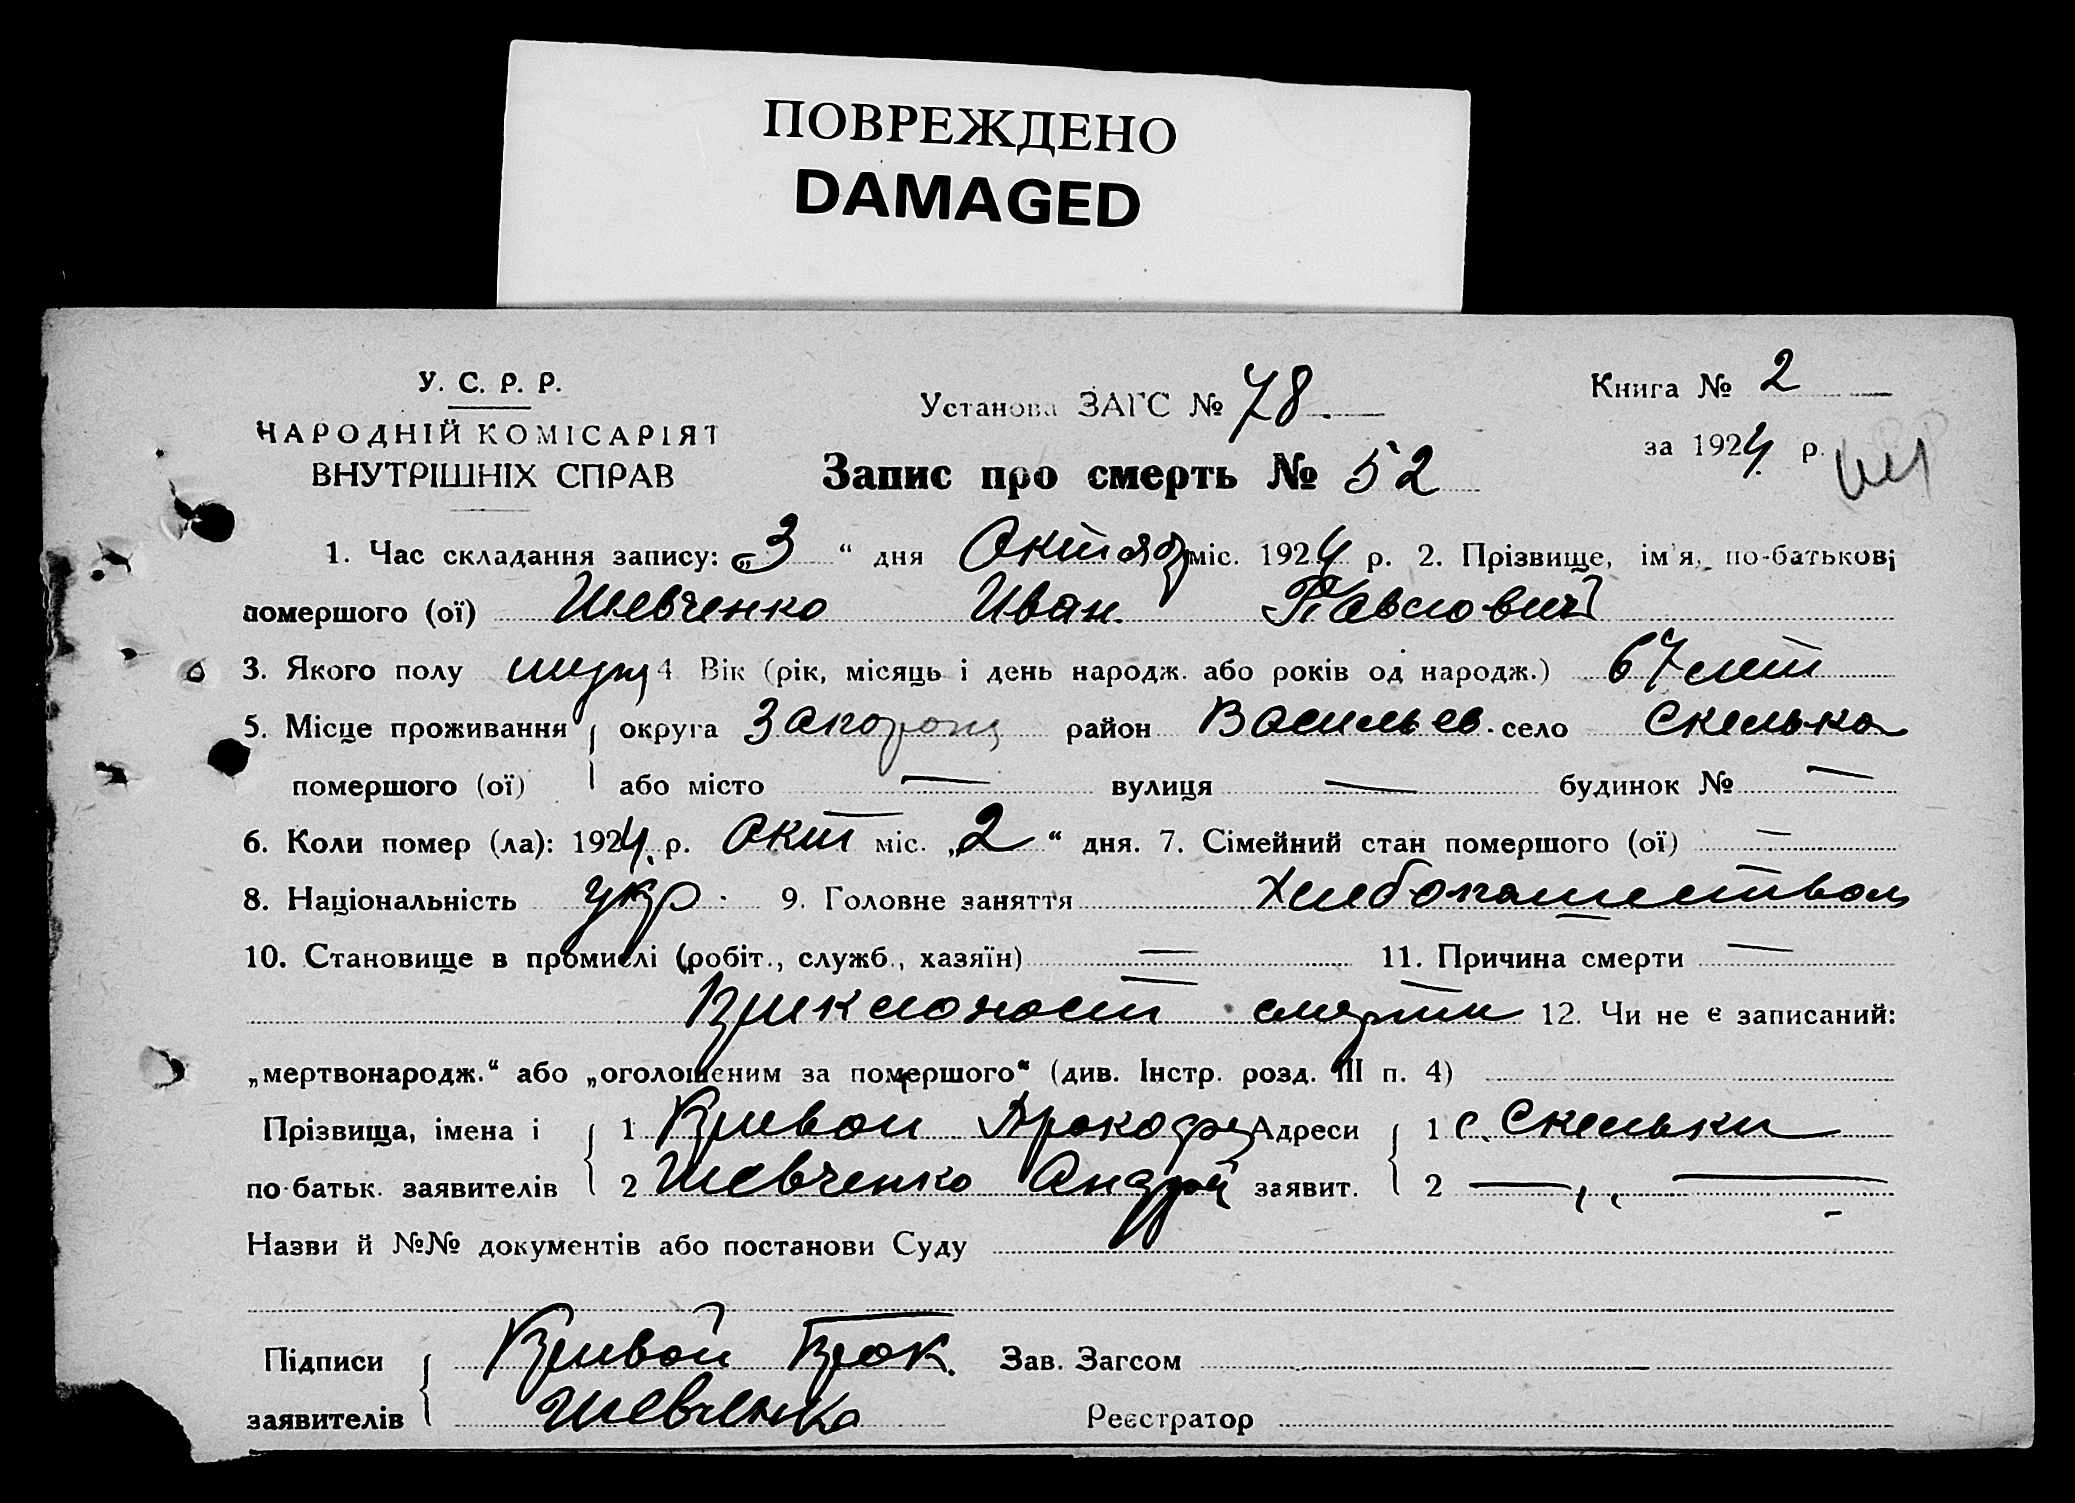 ПОВРЕЖДЕНО
DAMAGED
У. С. Р. Р.
НАРОДНІЙ КОМІСАРІЯТ
ВНУТРІШНІХ СПРАВ
Установа ЗАГС № 78.
Книга № 2
за 1924 р.
Запис про смерть № 52
1. Час складання запису: „3“ дня Октяб міс. 1924 р. 2. Прізвище, ім'я, по-батькові
помершого (ої) Шевченко Иван. Павлович
3. Якого полу муж 4 Вік (рік, місяць і день народж. або років од народж.) 67 лет
5. Місце проживання округа Запорож район Васильев. село Скелька
помершого (ої) або місто — вулиця — будинок № —
6. Коли помер (ла): 1924 р. Окт міс. „2“ дня. 7. Сімейний стан помершого (ої) —
8. Національність укр. 9. Головне заняття
10. Становище в промислі (робіт., служб., хазяїн) — 11. Причина смерти —
12. Чи не є записаний:
„мертвонародж.“ або „оголошеним за помершого“ (див. Інстр. розд. III п. 4)
Прізвища, імена і 1 Кривой Прокофий Адреси 1 с. Скельки
по-батьк. заявителів 2 Шевченко Андрій заявит. 2 — „ —
Назви й №№ документів або постанови Суду
Підписи Кривой Прок. Зав. Загсом
заявителів Шевченко Реєстратор